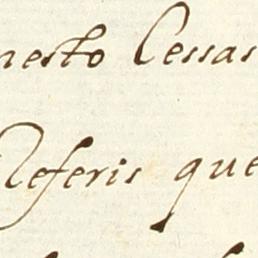 nesto Cessas
Referis que